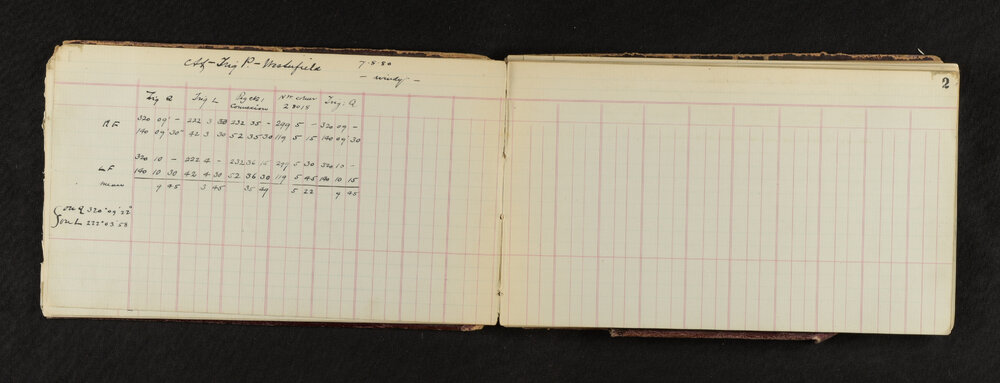 At Trig P. - Westerfield 7-8-80
- windy -
2
Trig Q Trig L Ryck: Connexion Nr Corner 28015 Trig: Q
RF 320 09 - 222 3 30 232 35 - 299 5 - 320 09 -
140 09 30 42 3 30 52 35 30 119 5 15 140 09 30
LF 320 10 - 222 4 - 232 36 15 299 5 30 320 10 -
140 10 30 42 4 30 52 36 30 119 5 45 140 10 15
mean 9 45 3 45 35 49 5 22 9 45
{ on Q 320° 09' 22"
on L 222° 03' 58